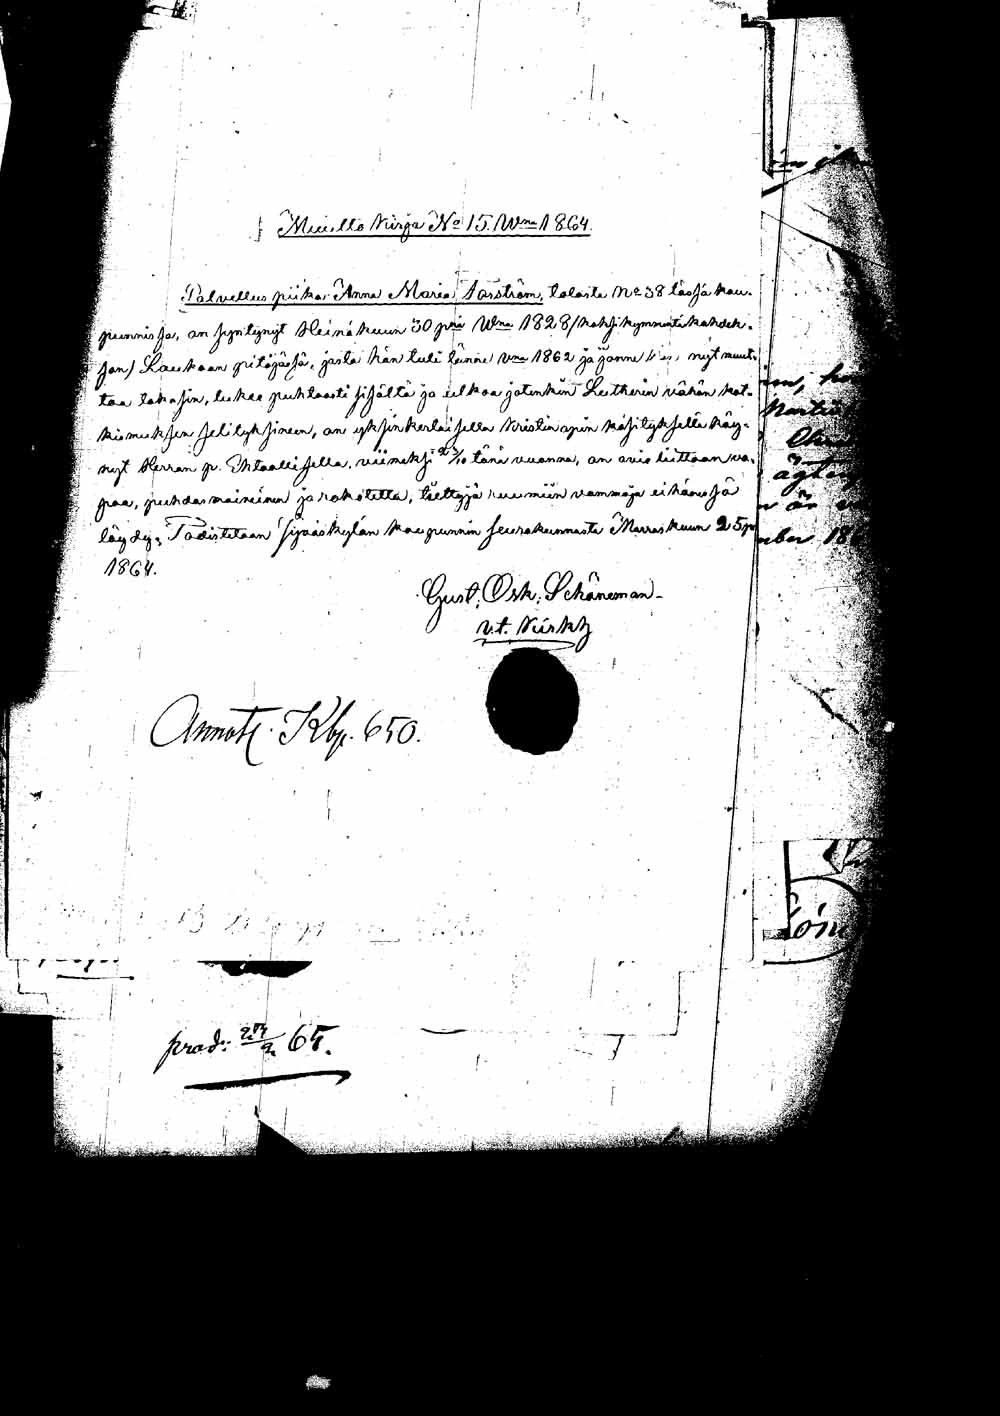 Muutto Kirja No 15. Wna 1864.
Palvellus piika Anna Maria Forström, talosta No 38 täsjä kau-
punnisja, on syntynyt Heinäkuun 30 pnä Wna 1828 /kaksikymmentä kahdek-
san/ Laukaan pitäjäsjä, josta hän tuli tänne vna 1862 ja jonne hän nyt muut-
taa takasin, lukee puhtaasti sisältä ja ulkoa jotenkin Lutherin vähän kat-
kismuksen selityksineen, on yksinkertaisella kristin opin käsityksellä käy-
nyt Herran p. Ehtoollisella, viimeksi 2/10 tänä vuonna, on avio liittoon va-
paa, puhdasmaineinen ja rokotettu, tiettyjä ruumiin vammoja ei hänesjä
löydy; Todistetaan Jyväskylän kaupunnin seurakunnasta Marraskuun 25 p
1864.
Gust. Osk. Schöneman
v.t. Kirkh
Annot. Kbg. 650.
prod: 65.
ber 186